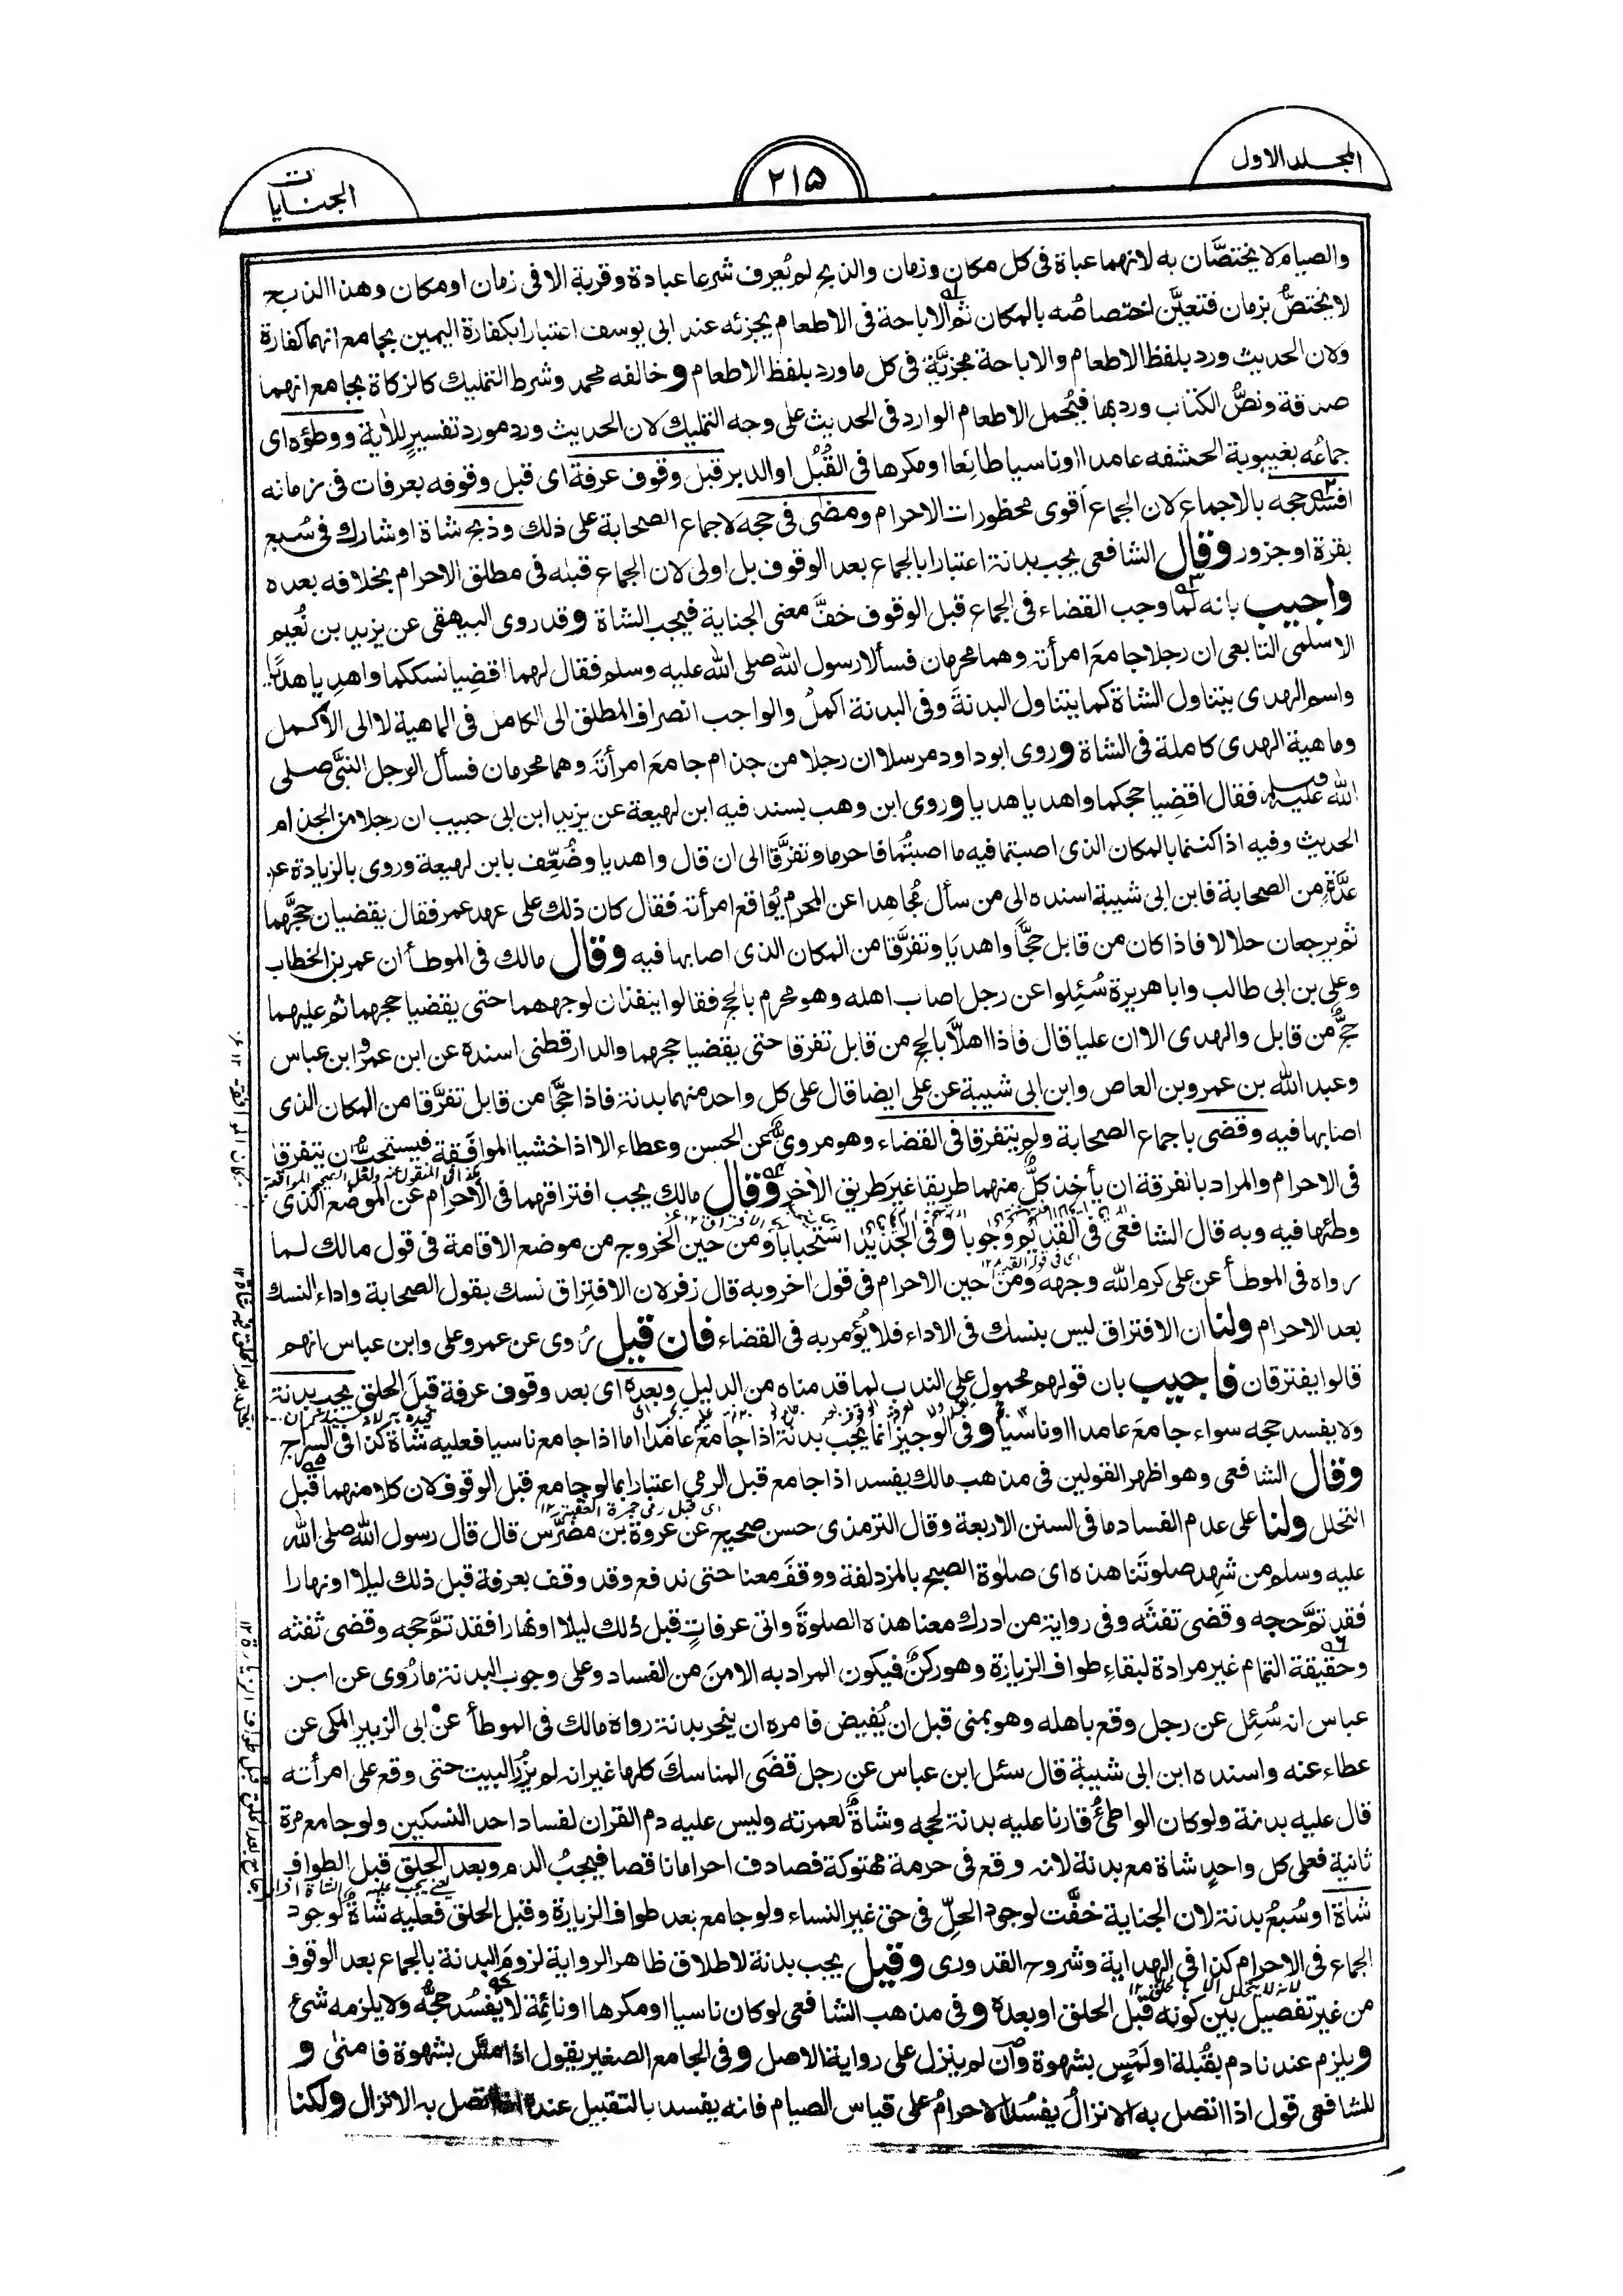 المجلد الاول
٢١٥
الجنايات
والصيام لا يختصَّان به لانهما عباة فى كل مكان وزمان والذبح لم يُعرف شرعا عبادة وقربة الا فى زمان او مكان وهذا الذبح
لا يختصُّ بزمان فتعيَّن اختصاصُه بالمكان ثم الاباحة فى الاطعام يجزئه عند ابى يوسف اعتبارا بكفارة اليمين بجامع انهما كفارة
ولان الحديث ورد بلفظ الاطعام والاباحة مجزيَّة فى كل ما ورد بلفظ الاطعام و خالفه محمد وشرط التمليك كالزكاة بجامع انهما
صدقة ونصُّ الكتاب ورد بها فيُحمل الاطعام الوارد فى الحديث على وجه التمليك لان الحديث ورد مورد تفسيرٍ للأية ووطؤه اى
جماعُه بغيبوبة الحشفه عامدا او ناسيا طائعا او مكرها فى القُبُل او الدبر قبل وقوف عرفة اى قبل وقوفه بعرفات فى زمانه
افسد حجه بالاجماع لان الجماع أقوى محظورات الاحرام ومضٰى فى حجه لاجماع الصحابة على ذلك وذبح شاة او شارك فى سُبع
بقرة او جزور وقال الشافعى يجب بدنة اعتبارا بالجماع بعد الوقوف بل اولى لان الجماع قبله فى مطلق الاحرام بخلافه بعده
واجيب بانه لما وجب القضاء فى الجماع قبل الوقوف خفَّ معنى الجناية فيجب الشاة وقد روى البيهقى عن يزيد بن نُعيم
الاسلمى التابعى ان رجلا جامعَ امرأته وهما محرمان فسألا رسول الله صلى الله عليه وسلم فقال لهما اقضِيا نسككما واهدِيا هديًا
واسم الهدى يتناول الشاة كما يتناول البدنةَ وفى البدنة اكملُ والواجب انصراف المطلق الى الكامل فى الماهية لا الى الأكمل
وماهية الهدى كاملة فى الشاة وروى ابوداود مرسلا ان رجلا من جذام جامعَ امرأتَه وهما محرمان فسأل الرجل النبىَّ صلى
الله عليه وسلم فقال اقضِيا حجكما واهديا هديا وروى ابن وهب بسند فيه ابن لهيعة عن يزيد ابن ابى حبيب ان رجلا من الجذام
الحديث وفيه اذا كنتما بالمكان الذى اصبتما فيه ما اصبتُما فاحرما وتفرَّقا الى ان قال واهديا وضُعِّف بابن لهيعة وروى بالزيادة عن
عدَّةٍ من الصحابة فابن ابى شيبة اسنده الى من سأل مُجاهدا عن المحرم يُواقع امرأته فقال كان ذلك على عهد عمر فقال يقضيان حجَّهما
ثم يرجعان حلالا فاذا كان من قابل حجَّا واهديَا وتفرَّقا من المكان الذى اصابها فيه وقال مالك فى الموطأ ان عمر بن الخطاب
وعلى بن ابى طالب وابا هريرة سُئِلوا عن رجل اصاب اهله وهو محرم بالحج فقالوا ينفذان لوجههما حتى يقضيا حجهما ثم عليهما
حجٌّ من قابل والهدى الا ان عليا قال فاذا اهلَّا بالحج من قابل تفرقا حتى يقضيا حجهما والدارقطنى اسنده عن ابن عمر وابن عباس
وعبد الله بن عمرو بن العاص وابن ابى شيبة عن على ايضا قال على كل واحد منهما بدنة فاذا حجَّا من قابل تفرَّقا من المكان الذى
اصابها فيه وقضى باجماع الصحابة ولم يتفرقا فى القضاء وهو مروىٌّ عن الحسن وعطاء الا اذا خشيا الموافقة فيستحبُّ ان يتفرقا
فى الاحرام والمراد بانفرقة ان يأخذ كلٌّ منهما طريقا غيرَ طريق الأخر وقال مالك يجب افتراقهما فى الاحرام عن الموضع الذى
وطئها فيه وبه قال الشافعى فى القديم وجوبا وفى الجديد استحبابا ومن حين الخروج من موضع الاقامة فى قول مالك لما
اى فى قوله القديم ١٢
رواه فى الموطأ عن على كرم الله وجهه ومن حين الاحرام فى قول اخر وبه قال زفر لان الافتراق نسك بقول الصحابة واداء النسك
بعد الاحرام ولنا ان الافتراق ليس بنسك فى الاداء فلا يُؤمر به فى القضاء فان قيل رُوى عن عمر وعلى وابن عباس انهم
قالوا يفترقان فاجيب بان قولهم محمول على الندب لما قدمناه من الدليل وبعده اى بعد وقوف عرفة قبلَ الحلق يجب بدنة
ولا يفسد حجه سواء جامعَ عامدا او ناسيا وفى الوجيز انما يجب بدنة اذا جامع عامدا اما اذا جامع ناسيا فعليه شاة كذا فى السراج
وقال الشافعى وهو اظهر القولين فى مذهب مالك يفسد اذا جامع قبل الرمى اعتبارا بما لو جامع قبل الوقوف لان كلا منهما قبل
اى قبل رمى جمرة العقبة ١٢
التحلل ولنا على عدم الفساد ما فى السنن الاربعة وقال الترمذى حسن صحيح عن عروة بن مضرَّس قال قال رسول الله صلى الله
عليه وسلم من شهِد صلوتَنا هذه اى صلوٰة الصبح بالمزدلفة ووقفَ معنا حتى ندفع وقد وقف بعرفة قبل ذلك ليلا او نهارا
فقد تمَّ حجه وقضى تفثَه وفى رواية من ادرك معنا هذه الصلوةَ واتىٰ عرفاتٍ قبل ذٰلك ليلا او نهارا فقد تمَّ حجه وقضى تفثه
وحقيقة التمام غير مرادة لبقاءِ طواف الزيارة وهو ركنٌ فيكون المراد به الامنَ من الفساد وعلى وجوب البدنة ما رُوى عن ابن
عباس انه سُئِل عن رجل وقع باهله وهو بمنى قبل ان يُفيض فامره ان ينحر بدنة رواه مالك فى الموطأ عن ابى الزبير المكى عن
عطاء عنه واسنده ابن ابى شيبة قال سئل ابن عباس عن رجل قضَى المناسكَ كلها غير انه لم يزُرِ البيت حتى وقع على امرأته
قال عليه بدنة ولو كان الواطئُ قارنا عليه بدنة لحجه وشاةٌ لعمرته وليس عليه دم القران لفساد احد النسكين ولو جامع مرة
ثانية فعلى كل واحدٍ شاة مع بدنة لانه وقع فى حرمة مهتوكة فصادف احراما ناقصا فيجبُ الدم وبعد الحلق قبل الطواف
شاة او سُبعُ بدنة لان الجناية خفَّت لوجود الحلِّ فى حق غير النساء ولو جامع بعد طواف الزيارة وقبل الحلق فعليه شاة لوجود
الجماع فى الاحرام كذا فى الهداية وشروح القدورى وقيل يجب بدنة لاطلاق ظاهر الرواية لزومَ البدنة بالجماع بعد الوقوف
لانه لا يتحلل الا بالحلق ١٢
من غير تفصيل بين كونه قبل الحلق او بعده و فى مذهب الشافعى لو كان ناسيا او مكرها او نائمة لا يفسُد حجُّه ولا يلزمه شئ
ويلزم عندنا دم بقُبلة او لَمْسٍ بشهوة وان لم ينزل على رواية الاصل وفى الجامع الصغير يقول اذا مسَّ بشهوة فامنىٰ و
للشافعى قول اذا اتصل به الانزالُ يفسُد الاحرامُ على قياس الصيام فانه يفسد بالتقبيل عنده اذا اتصل به الانزال ولكنا